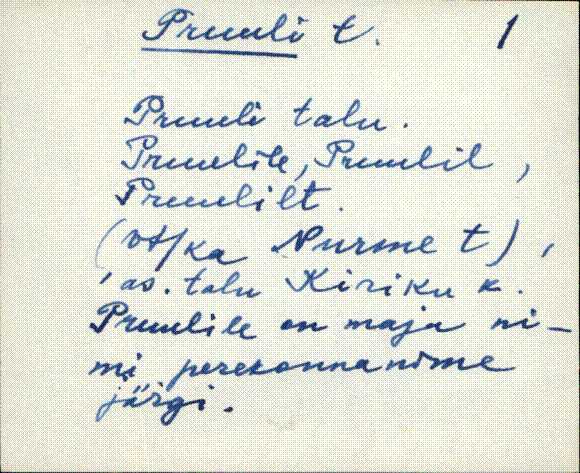 Pruuli t. 1
Pruuli talu.
Pruulile, Pruulil,
Pruulilt.
(vt/ka Nurme t),
as. talu Kiriku k.
Pruulile on maja ni-
mi perekonnanime
järgi.